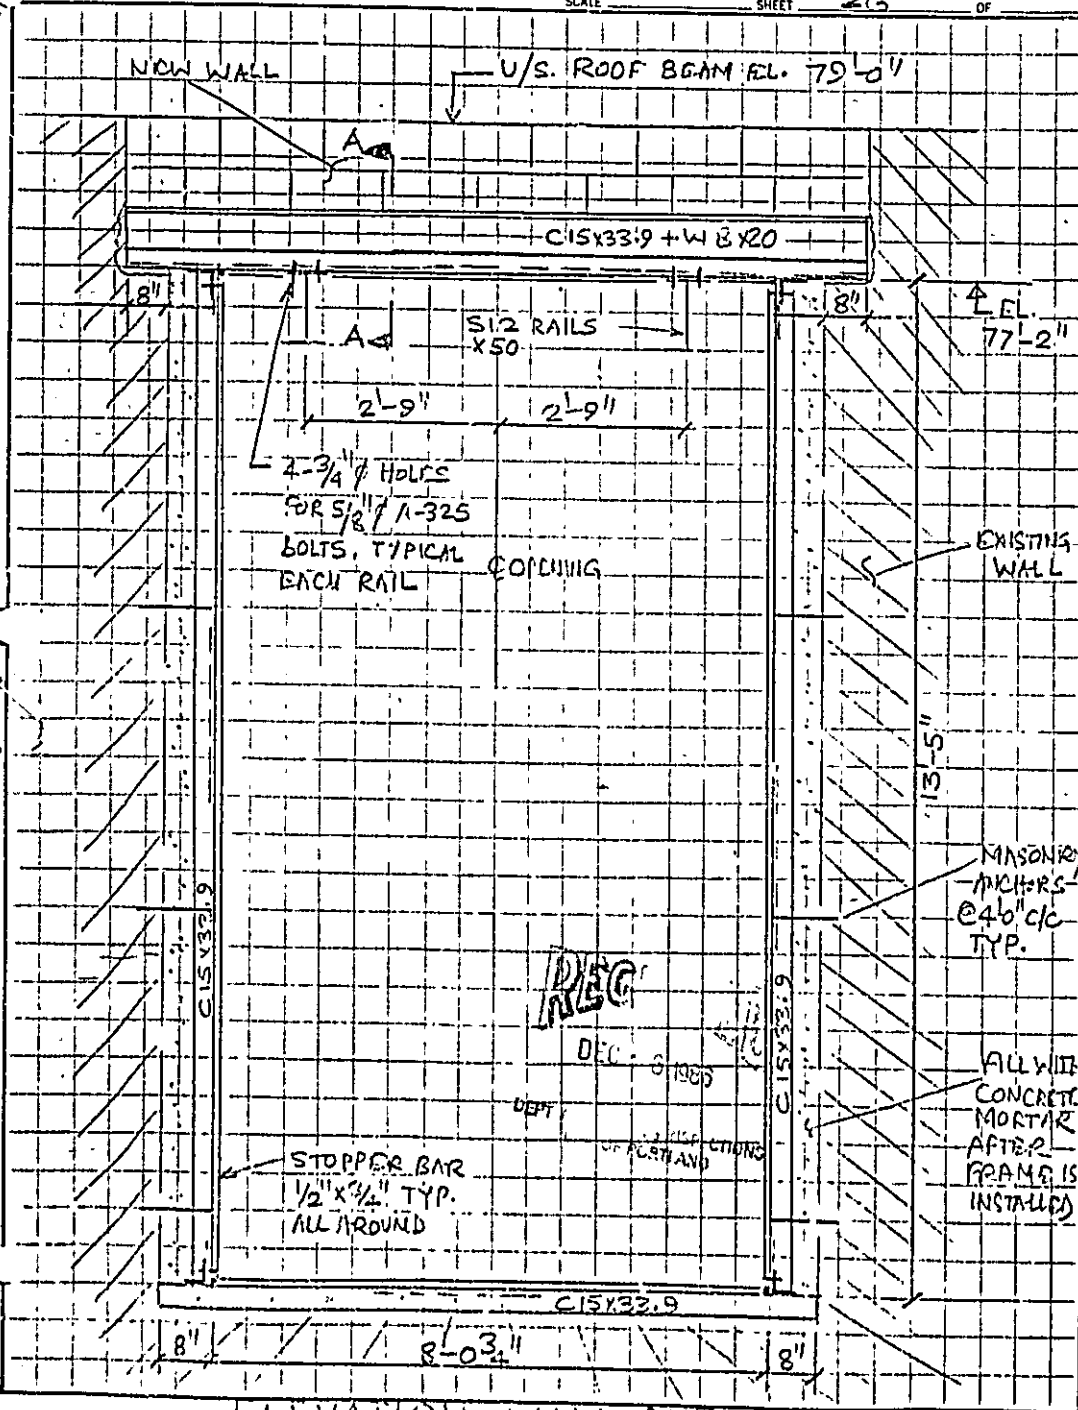 SCALE
SHEET
OF
NEW WALL
U/S. ROOF BEAM EL. 79'-0"
A
C15x33.9 + W 8x20
8"
8"
EL.
77'-2"
A
S12 RAILS
x50
2'-9"
2'-9"
4-3/4"ϕ HOLES
FOR 5/8"ϕ A-325
BOLTS, TYPICAL
EACH RAIL
EXISTING
WALL
13'-5"
MASONRY
ANCHORS
@4'0" C/C
TYP.
C15x33.9
C15x33.9
REC
DEC
DEPT
OF PORTLAND
CONCRETE
MORTAR
AFTER
FRAME IS
INSTALLED
STOPPER BAR
1/2" x 3/4" TYP.
ALL AROUND
C15x33.9
8"
8'-0 3/4"
8"